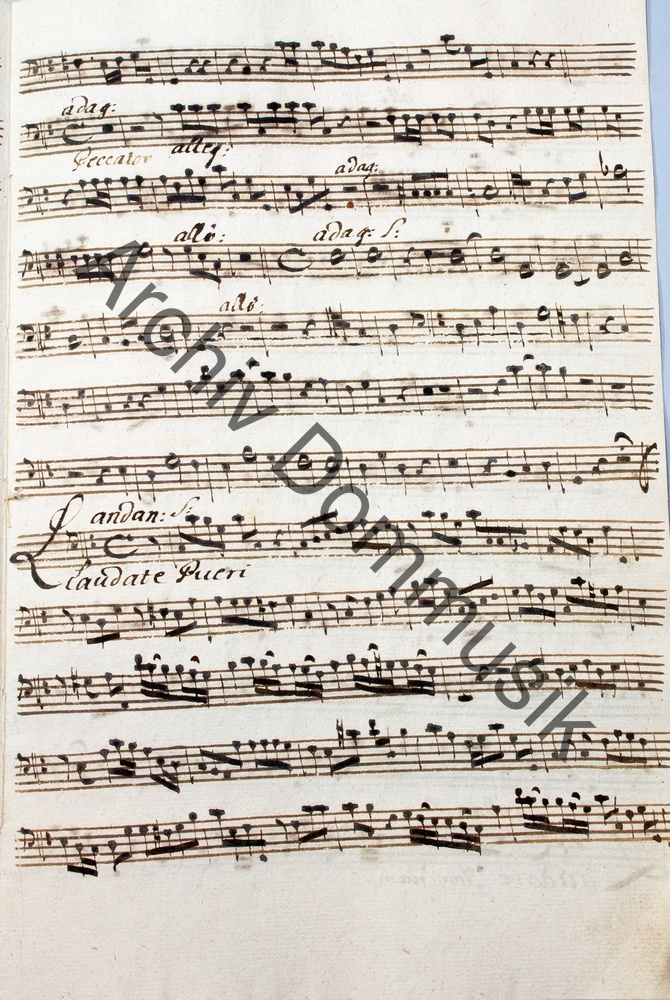 adag:
Peccator alleg:
adag:
allo: adag: S:
allo:
andan: S:
Laudate Pueri
Archiv Dommusik